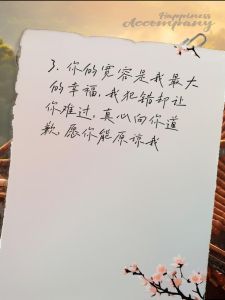 Happiness
Accompany
3. 你的宽容是我最大
的幸福,我犯错却让
你难过,真心向你道
歉,愿你能原谅我